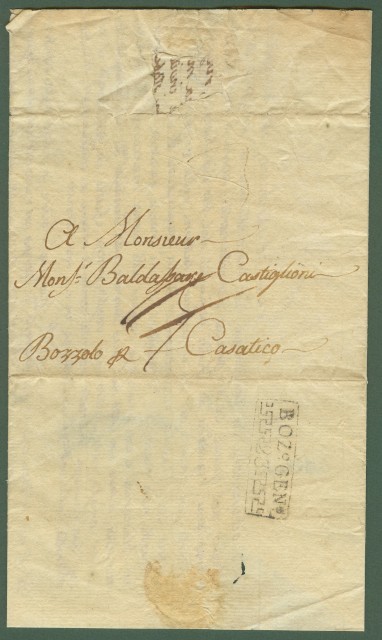 A Monsieur
Mons.r Baldassare Castiglioni
Bozzolo p Casatico
BOZ.o GEN.o